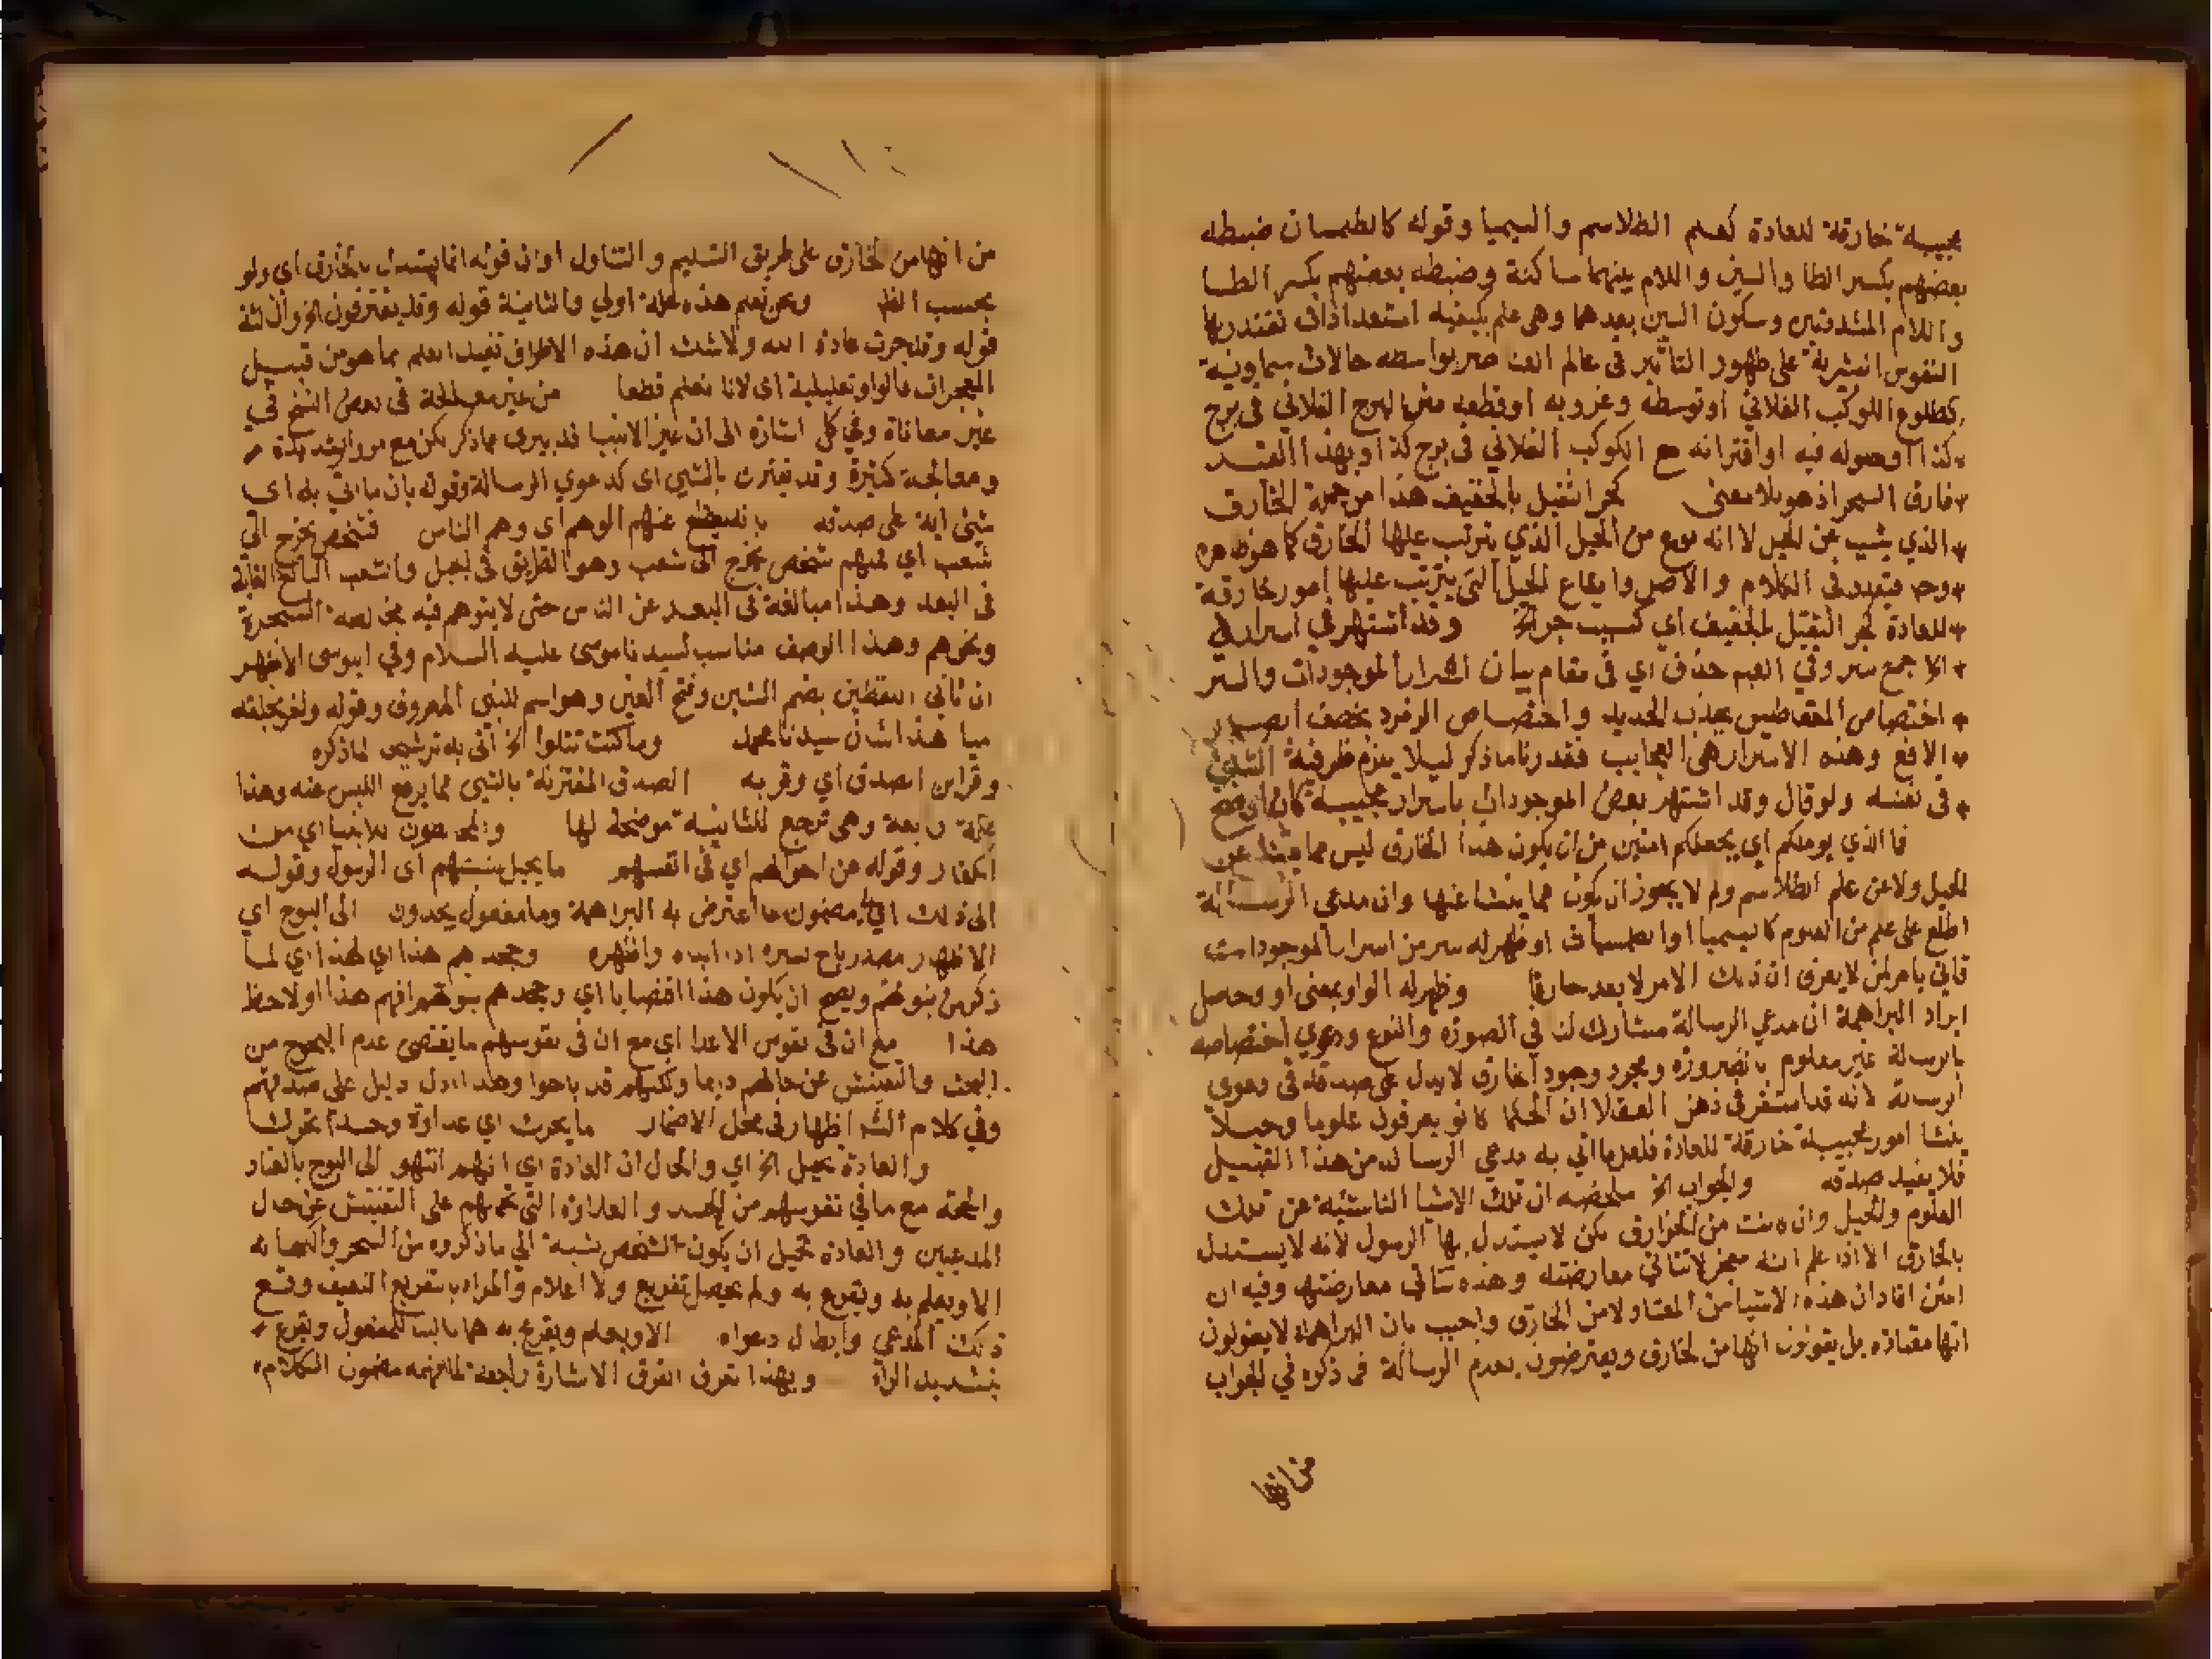 عجيبة خارقة للعادة كعلم الطلاسم والسيميا وقوله كالطلمسات ضبطه
بعضهم بكسر الطا والسين واللام بينهما ساكنة وضبطه بعضهم بكسر الطا
واللام المشددتين وسكون السين بعدهما وهي علم بكيفية استعدادات تقتدر بها
النفوس البشرية على ظهور التاثير في عالم العناصر بواسطه حالات سماوية
كطلوع الكوكب الفلاني اوتوسطه وغروبه اوقطعه من البرج الفلاني في برج
كذا اوحصوله فيه اواقترانه مع الكوكب الفلاني في برج كذا وبهذا القيد
فارق السحر اذ هو بلا معنى كجر الثقيل بالخفيف هذا من جملة الخارق
الذي تسبب عن الحيل لا انه نوع من الحيل الذي يترتب عليها الخارق كما هو
وح فيقدر في الكلام والاصل وايقاع الحيل التي يترتب عليها امور خارقة
للعادة كجر الثقيل بالخفيف اي كسبب جر الخ وقد اشتهر في اسرار
الخ جمع سر وفي العبم حذف اي في مقام بيان اسرار الموجودات والسر
اختصاص المغناطيس بجذب الحديد واختصاص الزمرد بخطف ابصار
الافع وهذه الاسرار هي العجايب فقدرنا ما ذكر ليلا يلزم ظرفية الشي
في نفسه ولوقال وقد اشتهر بعض الموجودات باسرار عجيبة كان اوضح
فا الذي يومنكم اي يجعلكم امنين من ان يكون هذا الخارق ليس مما ينشا عن
الحيل ولا عن علم الطلاسم ولم لا يجوز ان يكون مما ينشا عنها وان مدعي الرسالة
اطلع على علم من العلوم كالسيميا او الطلمسات اوظهر له سر من اسرار الموجودات
فاتى بامر لمن لا يعرف ان ذلك الامر لا يعد خارقا وظهر له الواو بمعنى او وحاصل
ايراد البراهمة ان مدعي الرسالة مشارك لنا في الصورة والنوع ودعوي اختصاصه
بالرسالة غير معلوم بالضرورة ومجرد وجود الخارق لا يدل على صدقه في دعوي
الرسالة لانه قد استقر في ذهن العقلا ان الحكما كانو يعرفون علوما وحيلا
ينشا امور عجيبة خارقة للعادة فلعل ما اتي به مدعي الرسالة من هذا القبيل
فلا يفيد صدقه والجواب الخ ملخصه ان تلك الاشيا الناشئية عن تلك
العلوم والحيل وان كانت من الخوارق لكن لا يستدل بها الرسول لانه لا يستدل
بالخارق الا اذا علم انه معجز لا تتاتي معارضته وهذه تتاتى معارضتها وفيه ان
المتن افاد ان هذه الاشيا من المعتاد لا من الخارق واجيب بان البراهمة لا يقولون
انها معتاده بل يقولون انها من الخارق ويعترضون بعدم الرسالة فما ذكره في الجواب
من انها
من انها من الخارق على طريق التسليم والتناول اوان قوله انما يستدل بالخارق اي ولو
بحسب الظن ونحن نعلم هذه علة اولي والثانية قوله وقد يقترفون الخ والثالثة
قوله وقد جرت عادة الله ولاشك ان هذه الاطراف تفيد العلم مما هو من قبيل
المعجزات فالواو تعليلية اى لانا نعلم قطعا من غير معالجة في بعض النسخ في
غير معاناة وفي كل اشارة الى ان غير الانبيا قد يبري مماذكر لكن مع مرور شدة
ومعالجة كثيرة وقد يقترن بالشي اى كدعوي الرسالة وقوله بان ما اتي به اى
شئ اية على صدقه بانقطع عنهم الوهم اي وهم الناس فشخص يخرج الى
شعب اي فمنهم شخص يخرج الى شعب وهو الطريق في الجبل والشعب البالغ الغاية
في البعد وهذا مبالغة في البعد عن الناس حتى لا يتوهم فيه مخالصة السحرة
ونحوهم وهذا الوصف مناسب لسيدنا موسى عليه السلام وفي اليوسى الاظهر
ان ثاني اللفظين بضم الشين وفتح العين وهو اسم للنبي المعروف وقوله ولم يخلقه
هذا شان سيدنا محمد وما كنت تتلوا الخ اتى به ترشيحا لماذكره
وقراين الصدق اي وقربه الصدق المقترنة بالشي مما يرفع اللبس عنه وهذا
علة رابعة وهي ترجع للثانية موضحة لها والمعارضون للانبيا اي من
الكفار وقوله من احوالهم اي في انفسهم ما يحيل بنسبتهم اى الرسول وقوله
الى ذلك اي مضمون ما اعترض به البراهمة وما مفعول يجدون الى البوح اي
الاظهار مصدر باح بسره اذا ابداه واظهره وجحدهم هذا اي لهذا اي لما
ذكر من بنوتهم ويصح ان يكون هذا اقتضابا اي وجحدهم بنبوتهم افهم هذا اولاحظ
هذا مع ان في نفوس الاعدا اي مع ان في نفوسهم ما يقتضي عدم البحوح من
البحث والتفتيش عن حالهم ديما ولكنهم قد باحوا وهذا ادل دليل على صدقهم
وفي كلام الش اظهار في محل الاضمار ما يحرك اي عداوة وحسدا تحرك
والعادة تحيل الخ اي والحال ان العادة اي انهم انتهو الى البوح بالعناد
والحجة مع ما في نفوسهم من الحسد والعداوة التي تحملهم على التفتيش عن حال
المدعيين والعادة تحيل ان يكون الشخص نسبة الي ما ذكروه من السحر والكهانة
الا ويعلم به ويقرع به ولم يحصل تقريع ولا اعلام والمراد بالتقريع التعنيف وقمع
ذلك المدعي وابطال دعواه الا ويعلم ويقرع به هما بالبنا للمفعول ويقرع
بتشديد الرآء وبهذا تعرف الفرق الاشارة راجعة لما فهمه مضمون الكلام